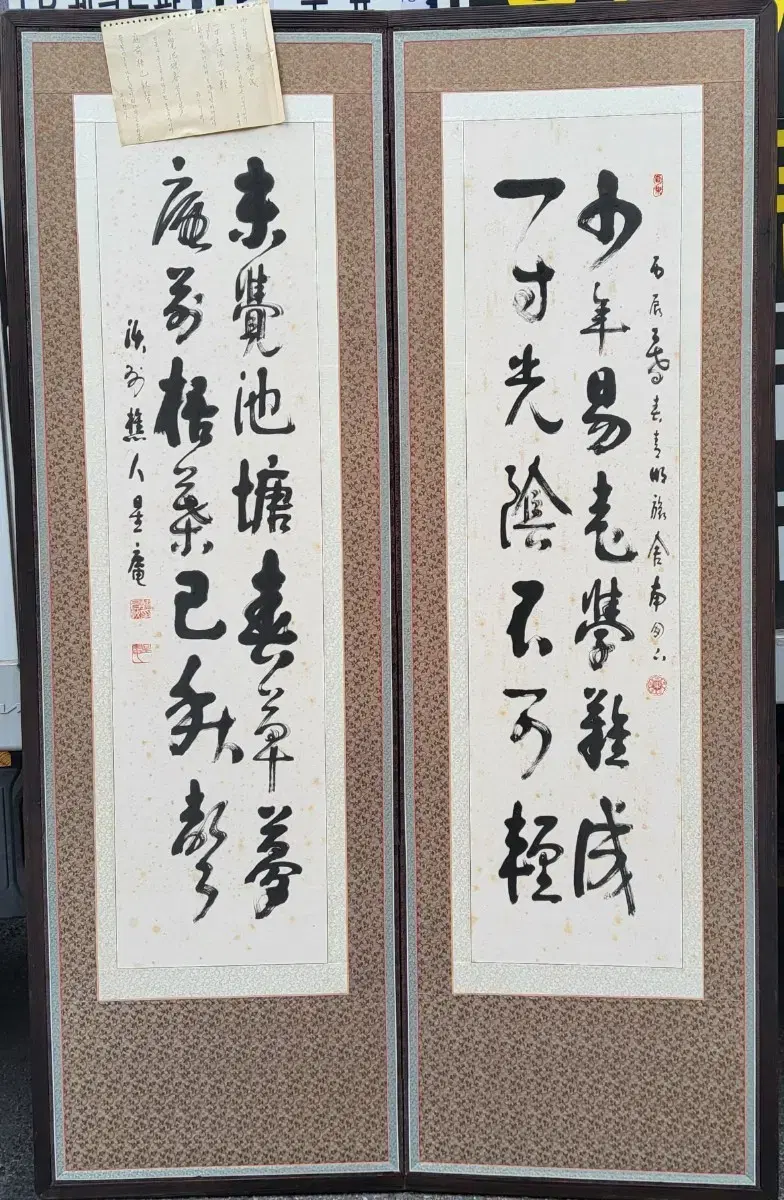 丙辰春青明旅舍南下
少年易老學難成
一寸光陰不可輕
未覺池塘春草夢
庭前梧葉已秋聲
樵人星庵